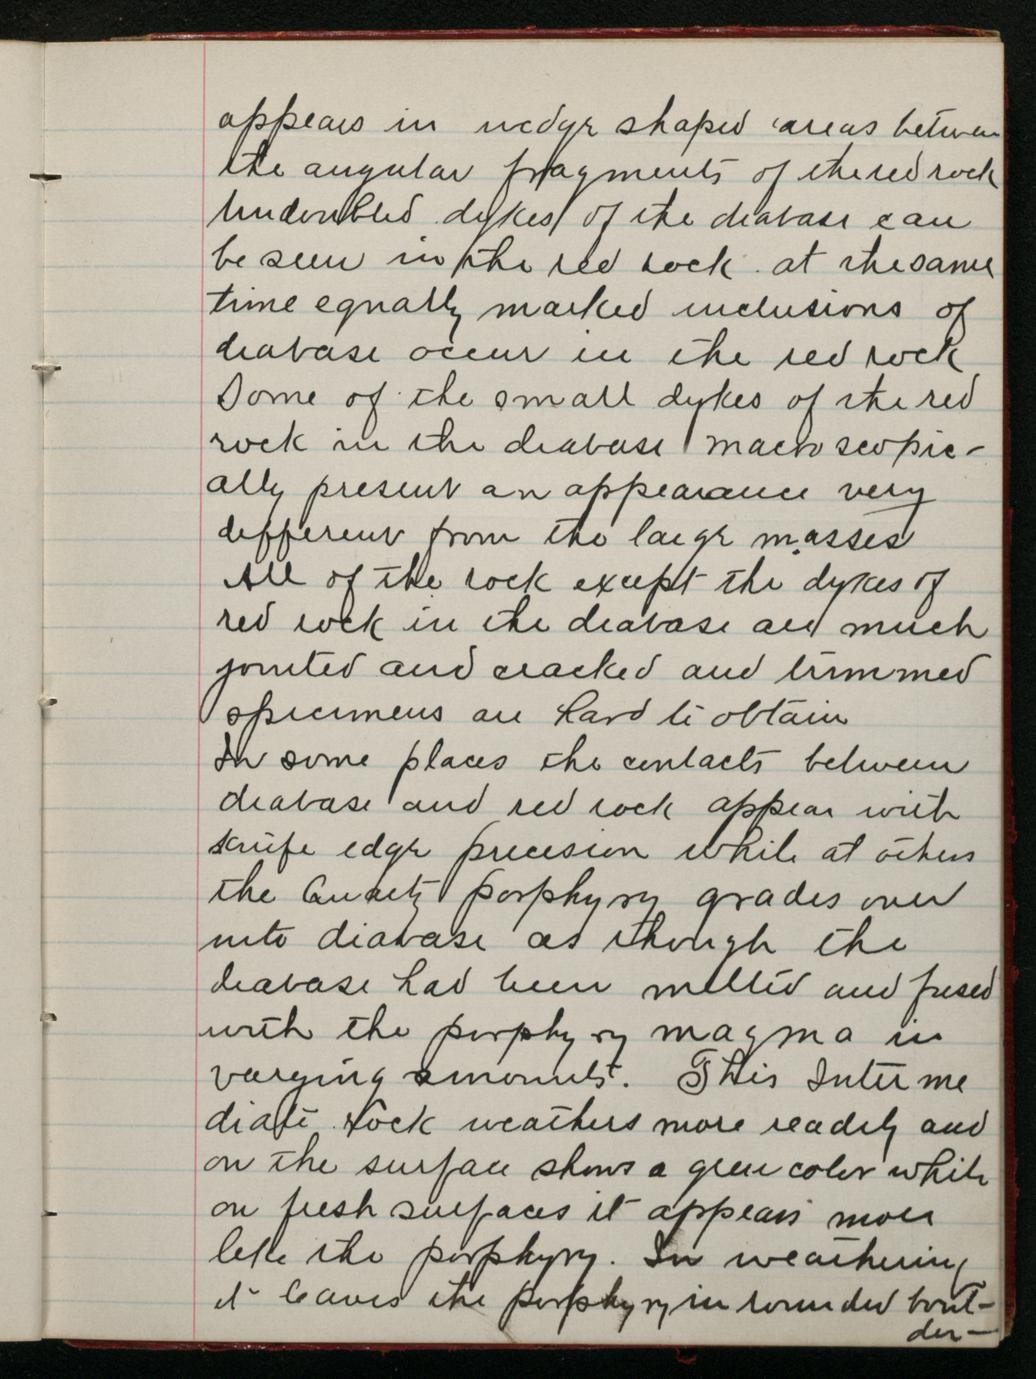 appears in wedge shaped areas between
the angular fragments of the red rock
Undoubted dykes of the diabase can
be seen in the red rock. at the same
time equally marked inclusions of
diabase occur in the red rock
Some of the small dykes of the red
rock in the diabase macroscopic-
ally present an appearance very
different from the large masses
All of the rock except the dykes of
red rock in the diabase are much
jointed and cracked and trimmed
specimens are hard to obtain
In some places the contacts between
diabase and red rock appear with
knife edge precision while at others
the Quartz porphyry grades over
into diabase as though the
diabase had been melted and fused
with the porphyry magma in
varying amounts. This Interme
diate rock weathers more readily and
on the surface shows a green color while
on fresh surfaces it appears more
like the porphyry. In weathering
it leaves the porphyry in rounded boul-
der-